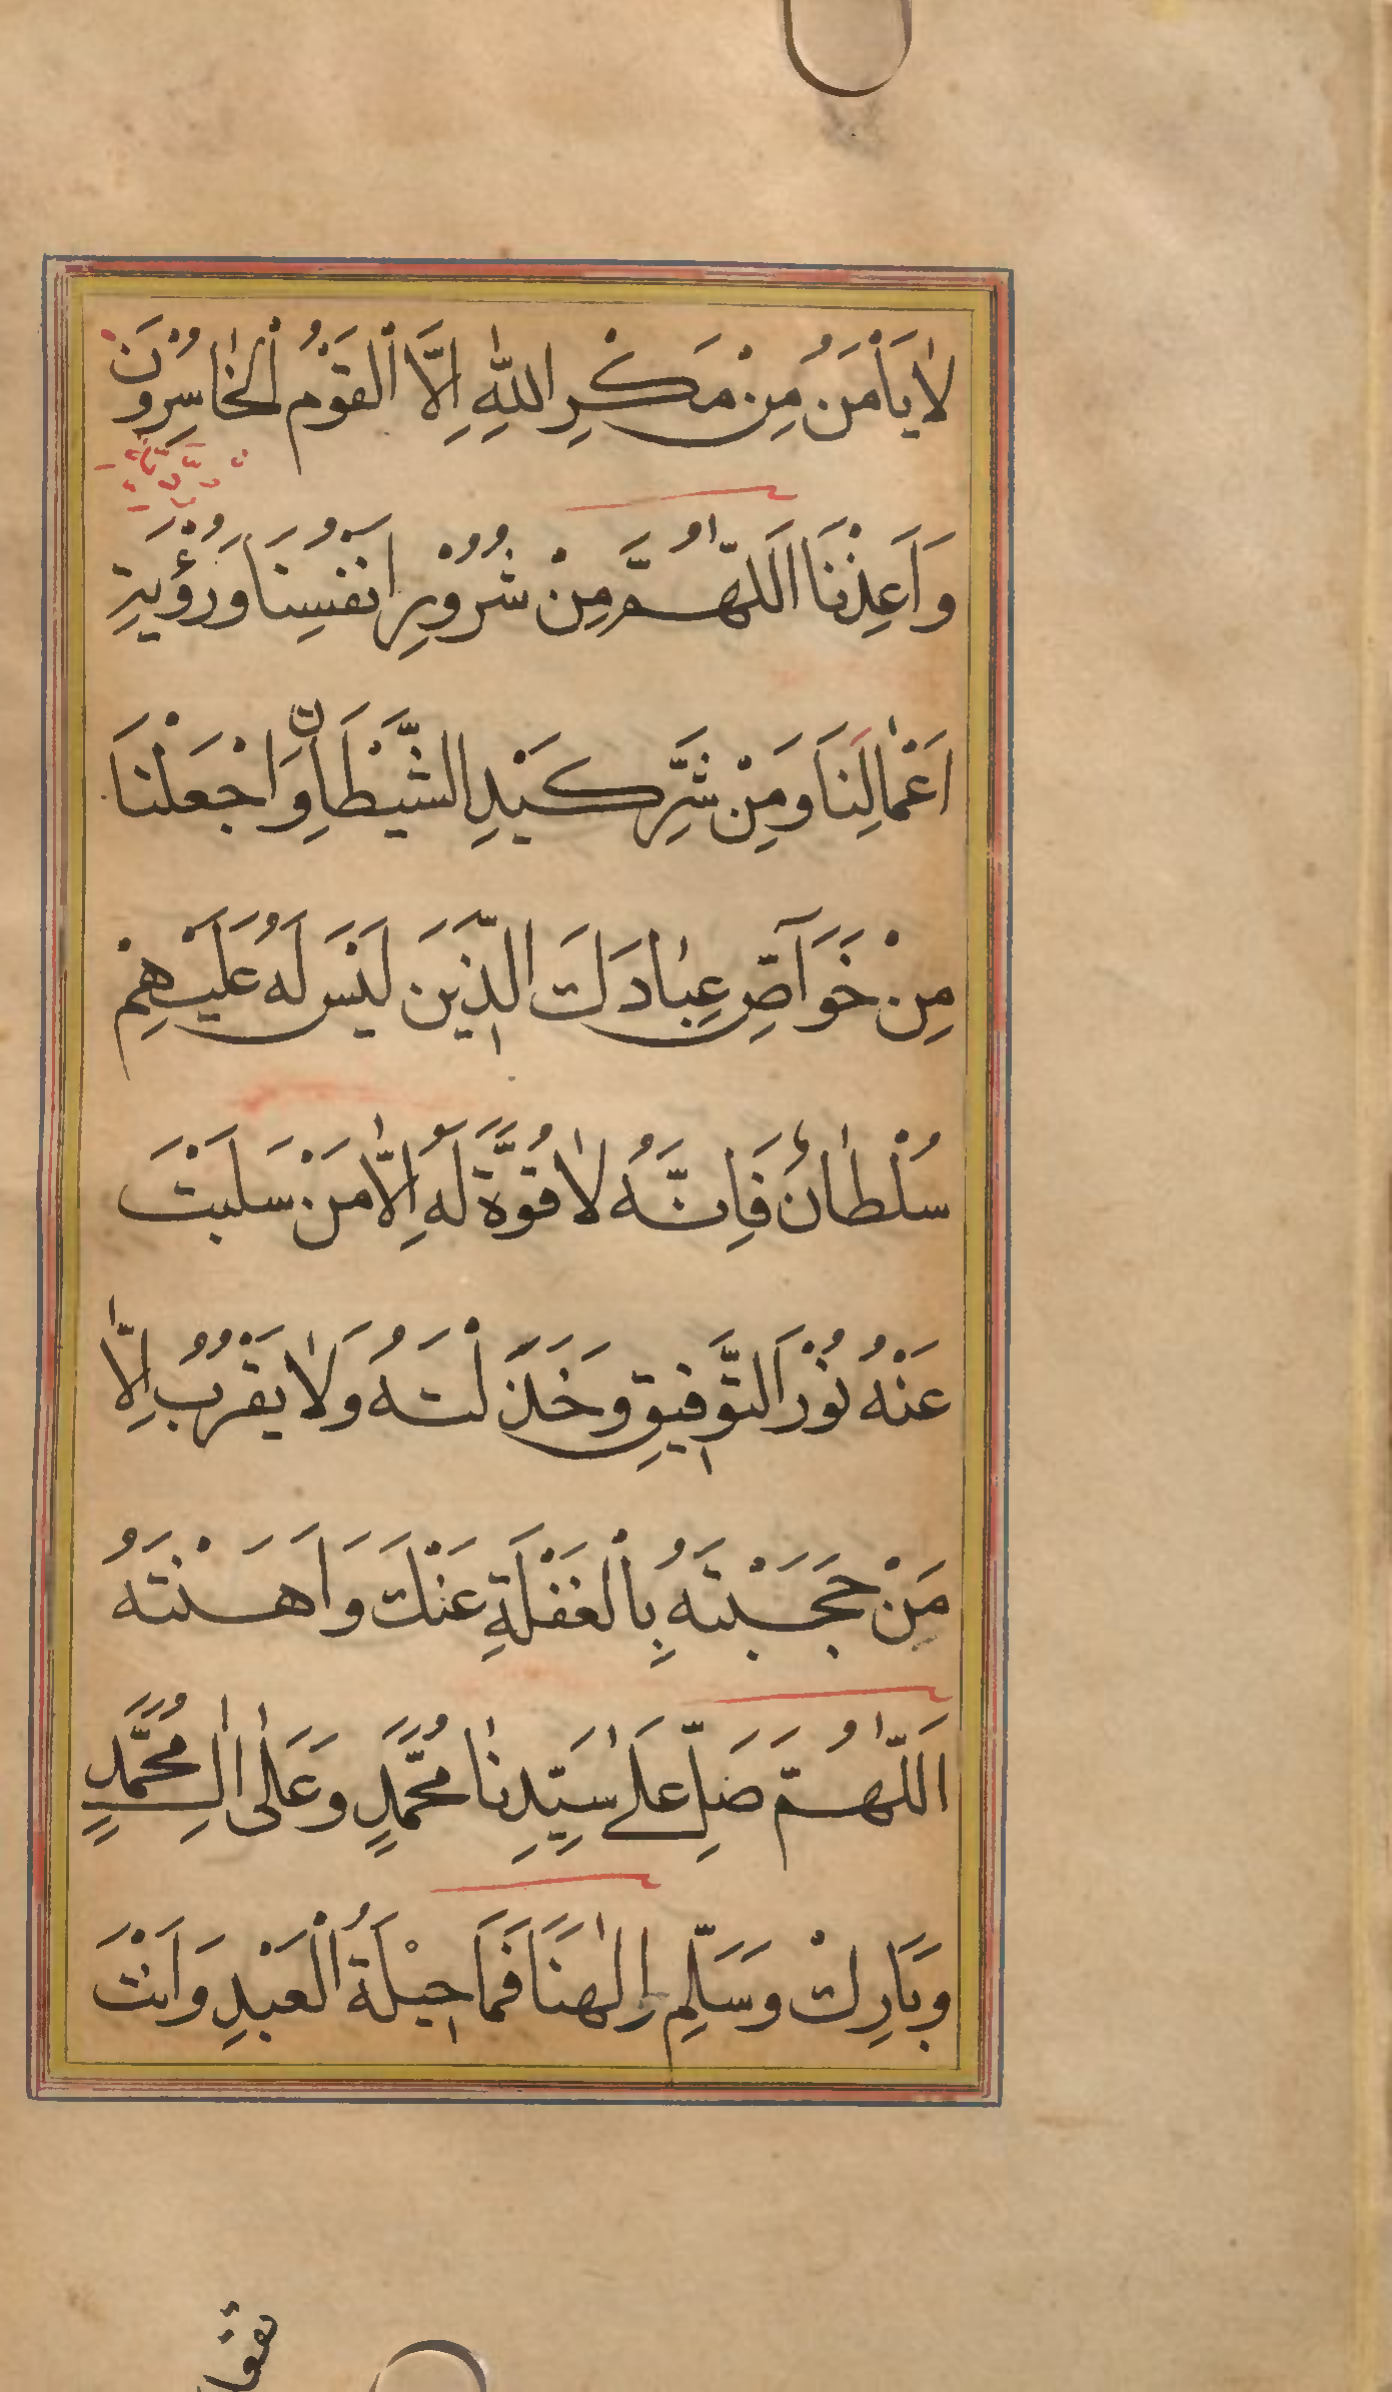 لَا يَأْمَنُ مِنْ مَكْرِ اللّٰهِ اِلَّا الْقَوْمُ الْخَاسِرُوْنَ
وَاَعِذْنَا اَللّٰهُمَّ مِنْ شُرُوْرِ اَنْفُسِنَا وَرُؤْيَةِ
اَعْمَالِنَا وَمِنْ شَرِّ كَيْدِ الشَّيْطَانِ وَاجْعَلْنَا
مِنْ خَوَآصِّ عِبَادِكَ الَّذِيْنَ لَيْسَ لَهُ عَلَيْهِمْ
سُلْطَانٌ فَاِنَّهُ لَا قُوَّةَ لَهُ اِلَّا مَنْ سَلَبْتَ
عَنْهُ نُوْرَ التَّوْفِيقِ وَخَذَلْتَهُ وَلَا يَقْرُبُ اِلَّا
مَنْ حَجَبْتَهُ بِالْغَفْلَةِ عَنْكَ وَاَهَنْتَهُ
اَللّٰهُمَّ صَلِّ عَلٰى سَيِّدِنَا مُحَمَّدٍ وَعَلٰى اٰلِ مُحَمَّدٍ
وَبَارِكْ وَسَلِّمْ اِلٰهَنَا فَمَا حِيْلَةُ الْعَبْدِ وَاَنْتَ
تقوا